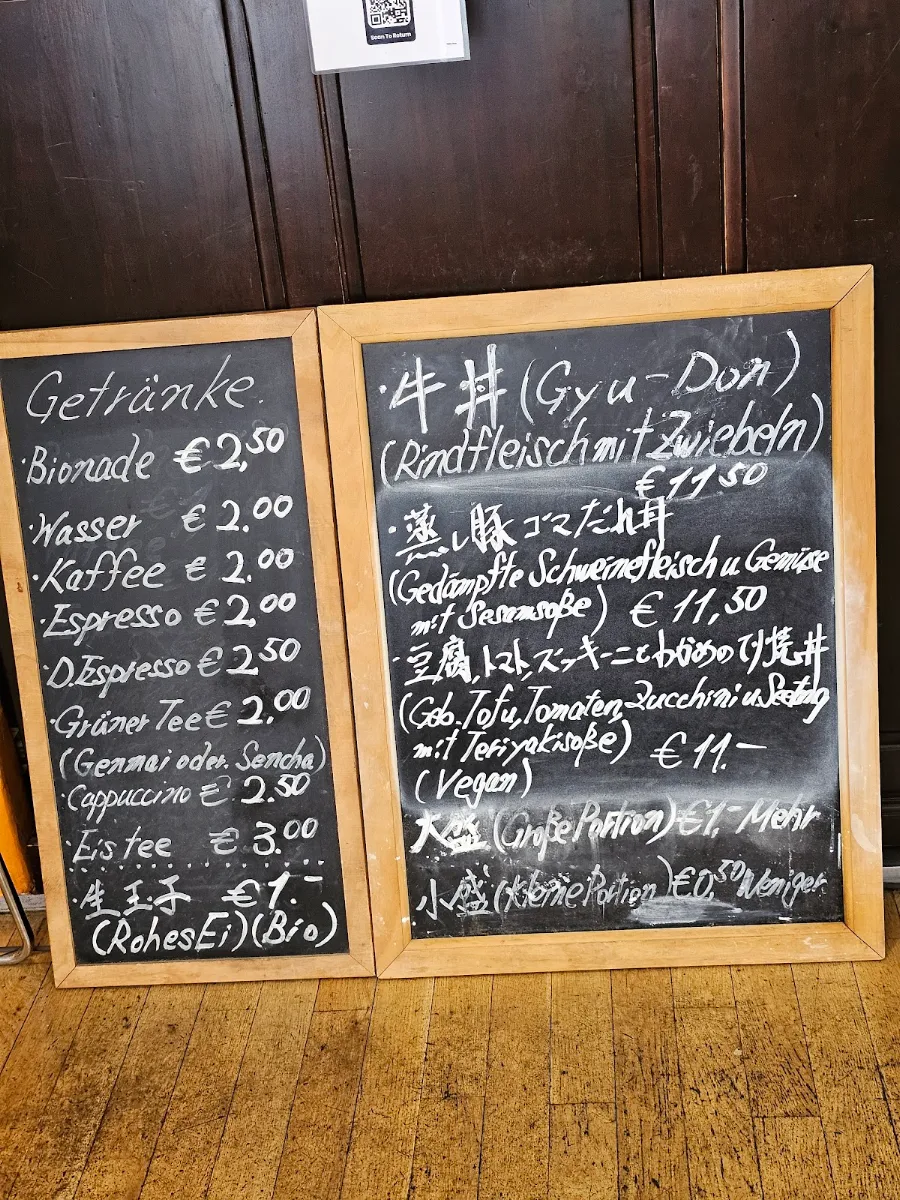 Scan To Return
Getränke.
·Bionade €2,50
·Wasser €2.00
·Kaffee €2.00
·Espresso €2,00
·D.Espresso €2 50
·Grüner Tee €2,00
(Genmai oder. Sencha)
·Cappuccino €2.50
·Eistee €3.00
·生玉子 €1.-
(Rohes Ei)(Bio)
·牛丼(Gyu-Don)
(Rindfleisch mit Zwiebeln)
€11 50
·蒸し豚ゴマだれ丼
(Gedämpfte Schweinefleisch u Gemüse
mit Sesamsoße) €11,50
·豆腐,トマト,ズッキーニとわかめのてり焼丼
(Geb.Tofu,Tomaten,Zucchini u.Seetang
mit Teriyakisoße) €11.-
(Vegan)
大盛(Große Portion)€1,- Mehr
小盛(Kleine Portion)€0,50 Weniger